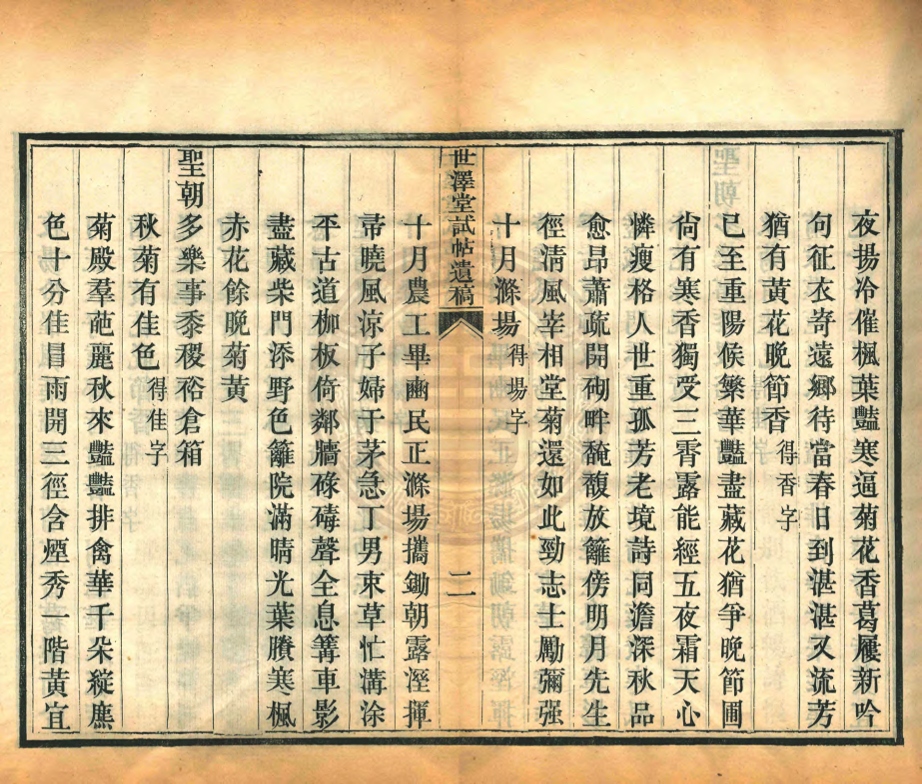 夜揚冷催楓葉豔寒逼菊花香葛屨新吟
句征衣寄遠鄉待當春日到湛湛又流芳
猶有黃花晚節香得香字
已至重陽候繁華豔盡藏花猶爭晚節圃
尙有寒香獨受三霄露能經五夜霜天心
憐瘦格人世重孤芳老境詩同澹深秋品
愈昂蕭疏開砌畔馣馥放籬傍明月先生
徑淸風宰相堂菊還如此勁志士勵彌强
十月滌場得場字
世澤堂試帖遺稿 二
十月農工畢豳民正滌場攜鋤朝露溼揮
帚曉風涼子婦于茅急丁男束草忙溝涂
平古道枷板倚鄰牆碌碡聲全息篝車影
盡藏柴門添野色籬院滿晴光葉賸寒楓
赤花餘晚菊黃
聖朝多樂事黍稷裕倉箱
秋菊有佳色得佳字
菊殿羣葩麗秋來豔豔排禽華千朵綻應
色十分佳冒雨開三徑含煙秀一階黃宜